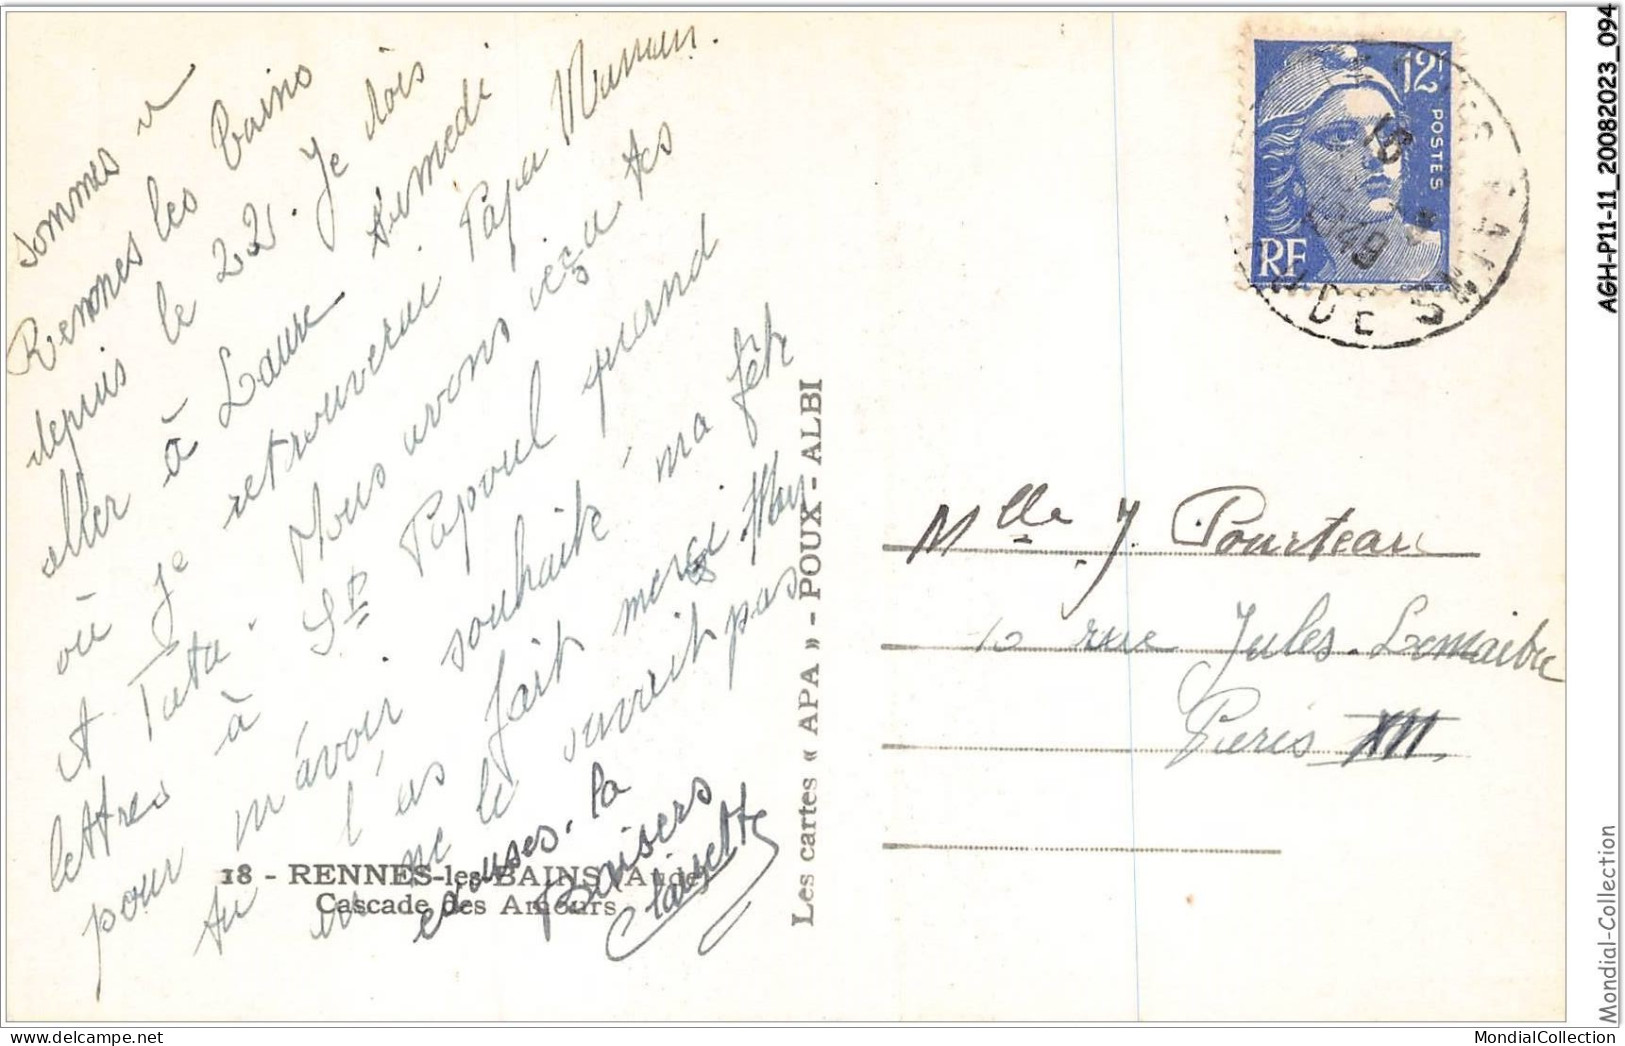 sommes à
Rennes les bains
depuis le 22. Je dois
aller à Laure samedi
où je retrouverai Papa Maman
et Tata. Nous avons reçu tes
lettres à St Papoul quand
pour m'avoir souhaité ma fête
tu l'as fait merci. Mon
ne le ouvrait pas
excuses-la
baisers
Clairette
18 - RENNES-les-BAINS (Aude)
Cascade des Amours
Les cartes « APA » - POUX - ALBI
12F
POSTES
RF
1949
AUDE
Mlle J. Pourteau
10 rue Jules-Lemaitre
Paris XII
AGH-P11-11_20082023_094
Mondial-Collection
MondialCollection